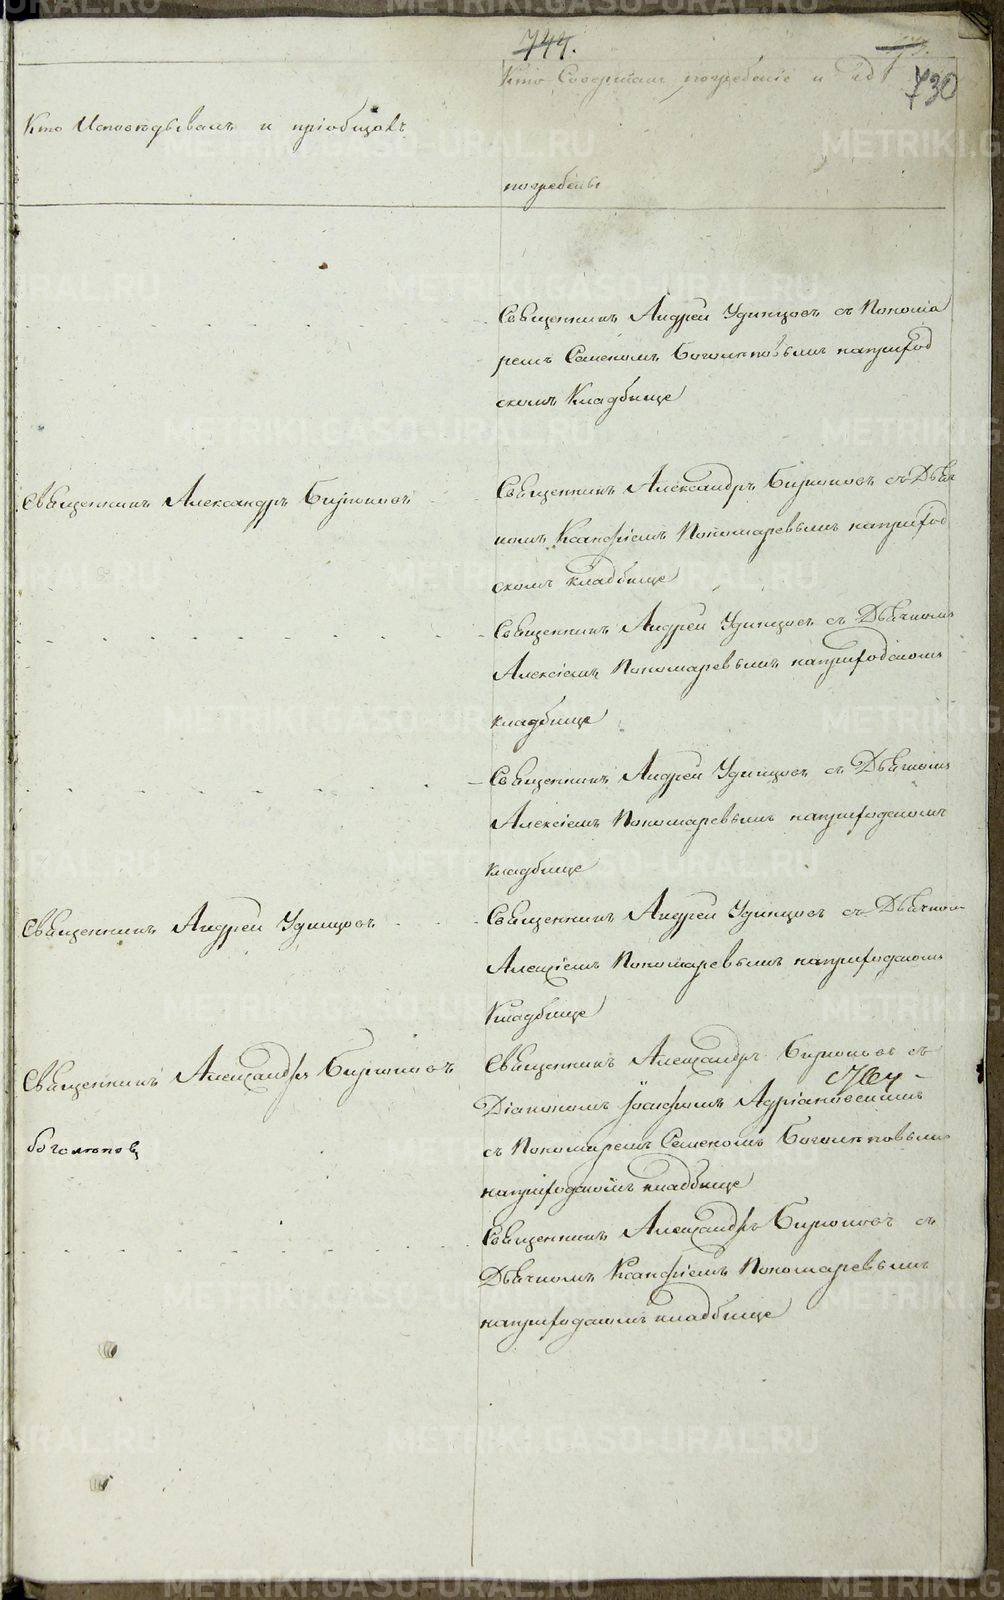 744.
730
Кто Совершалъ погребеніе и гд
Кто Исповѣдывалъ и пріобщалъ
погребены
Священникъ Андрей Удинцовъ съ Понома
ремъ Семеномъ Боголѣповымъ наприход
скомъ Кладбище
Священникъ Александръ Бирюковъ
Священникъ Александръ Бирюковъ съ Дьяч
комъ Ксанфіемъ Пономаревымъ наприход
скомъ кладбище
Священникъ Андрей Удинцовъ съ Дьячкомъ
Алексіемъ Пономаревымъ наприходскомъ
кладбище
Священникъ Андрей Удинцовъ съ Дьячкомъ
Алексіемъ Пономаревымъ наприходскомъ
кладбище
Священникъ Андрей Удинцовъ
Священникъ Андрей Удинцовъ съ Дьячком
Алексіемъ Пономаревымъ наприходскомъ
Кладбище
Священникъ Александръ Бирюковъ
Священникъ Александръ Бирюковъ съ
Діакономъ Іоасафомъ Адріановскимъ
боголѣповъ
съ Пономаремъ Семеномъ Боголѣповымъ
наприходскомъ кладбище
Священникъ Александръ Бирюковъ съ
Дьячкомъ Ксанфіемъ Пономаревымъ
наприходскомъ кладбище
METRIKI.GASO-URAL.RU